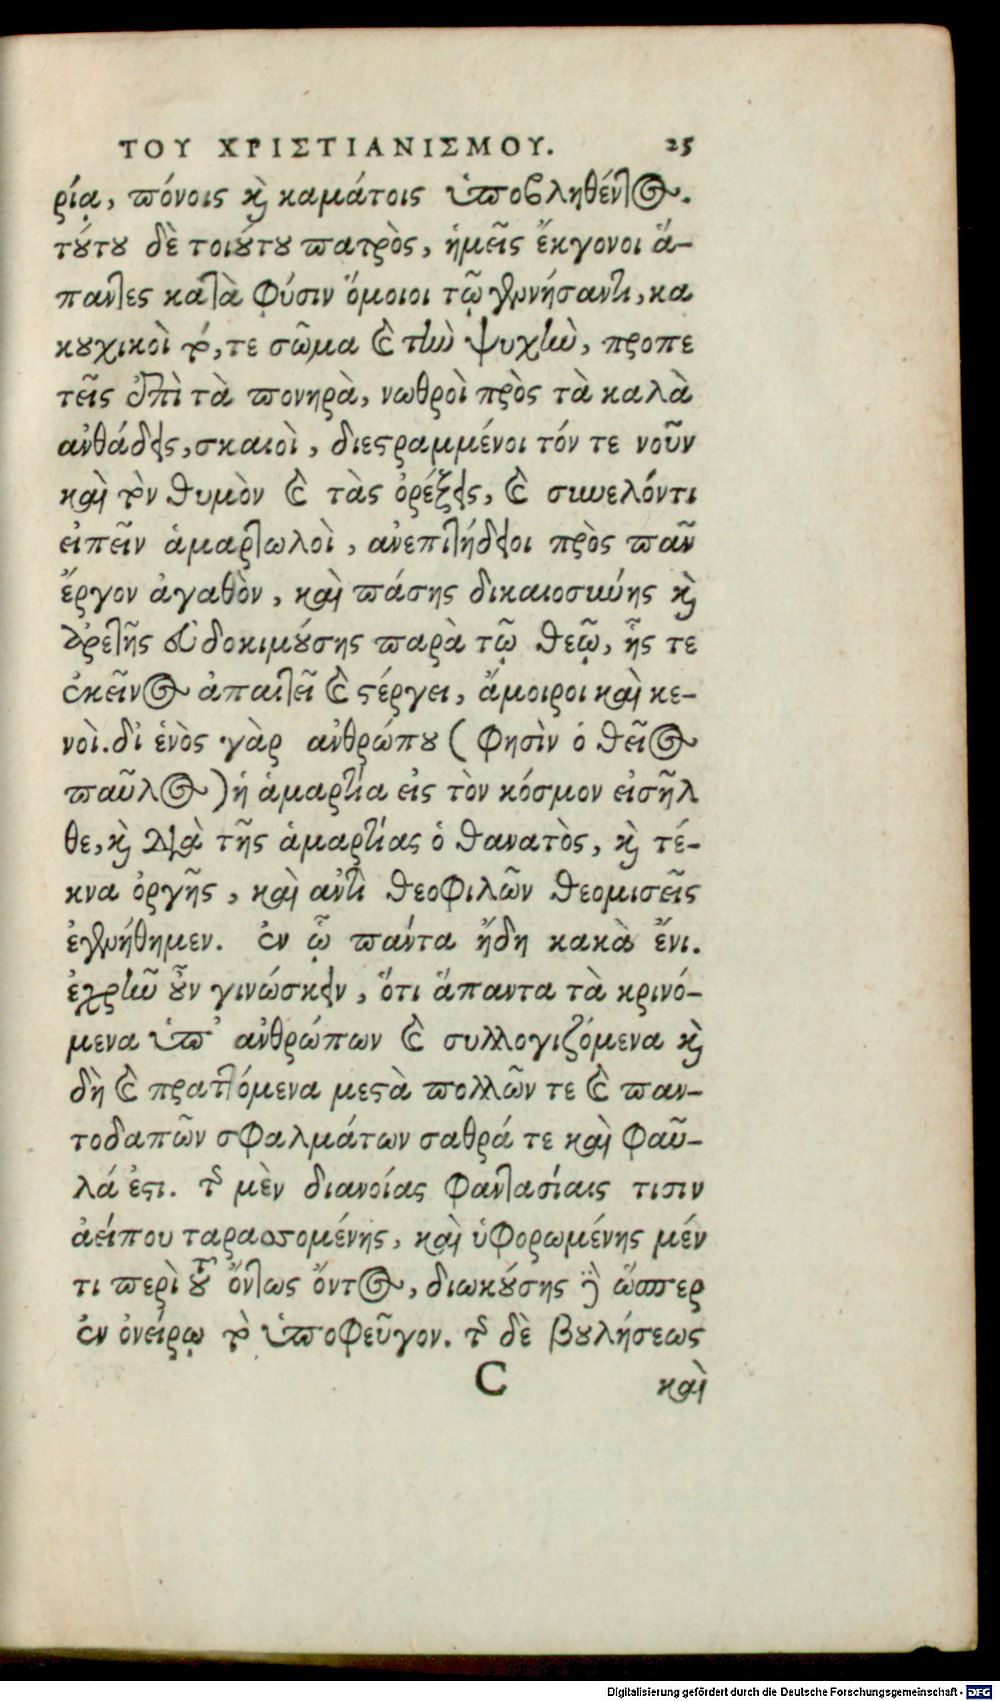 ΤΟΥ ΧΡΙΣΤΙΑΝΙΣΜΟΥ. 25
ρίᾳ, πόνοις κỳ καμάτοις ὑποβληθέντος.
τούτου δὲ τοιούτου πατρὸς, ἡμεῖς ἔκγονοι ἅ-
παντες κατὰ φύσιν ὅμοιοι τῷ γεννήσαντι, κα
κουχικοὶ τό, τε σῶμα καὶ τὴν ψυχὴν, προπε
τεῖς ἐπὶ τὰ πονηρὰ, νωθροὶ πρὸς τὰ καλὰ
αὐθάδεις, σκαιοὶ, διεστραμμένοι τόν τε νοῦν
καὶ τὸν θυμὸν καὶ τὰς ὀρέξεις, καὶ συνελόντι
εἰπεῖν ἁμαρτωλοὶ, ἀνεπιτήδειοι πρὸς πᾶν
ἔργον ἀγαθὸν, καὶ πάσης δικαιοσύνης καὶ
ἀρετῆς εὐδοκιμούσης παρὰ τῷ θεῷ, ἧς τε
ἐκεῖνος ἀπαιτεῖ καὶ στέργει, ἄμοιροι καὶ κε-
νοὶ. δι ἑνὸς γὰρ ἀνθρώπου ( φησὶν ὁ θεῖος
παῦλος ) ἡ ἁμαρτία εἰς τὸν κόσμον εἰσῆλ
θε, καὶ διὰ τῆς ἁμαρτίας ὁ θανατὸς, καὶ τέ-
κνα ὀργῆς, καὶ ἀντὶ θεοφιλῶν θεομισεῖς
ἐγενήθημεν. ἐν ᾧ πάντα ἤδη κακὰ ἔνι.
ἐχρῆν οὖν γινώσκειν, ὅτι ἅπαντα τὰ κρινό-
μενα ὑπ' ἀνθρώπων καὶ συλλογιζόμενα καὶ
δὴ καὶ πραττόμενα μετὰ πολλῶν τε καὶ παν-
τοδαπῶν σφαλμάτων σαθρά τε καὶ φαῦ-
λά ἐστι. τῆς μὲν διανοίας φαντασίαις τισιν
ἀείπου ταρασσομένης, καὶ ὑφορωμένης μέν
τι περὶ τοῦ ὄντως ὄντος, διωκούσης δὲ ὥσπερ
ἐν ὀνείρῳ τὸ ὑποφεῦγον. τῆς δὲ βουλήσεως
C καὶ
Digitalisierung gefördert durch die Deutsche Forschungsgemeinschaft - DFG